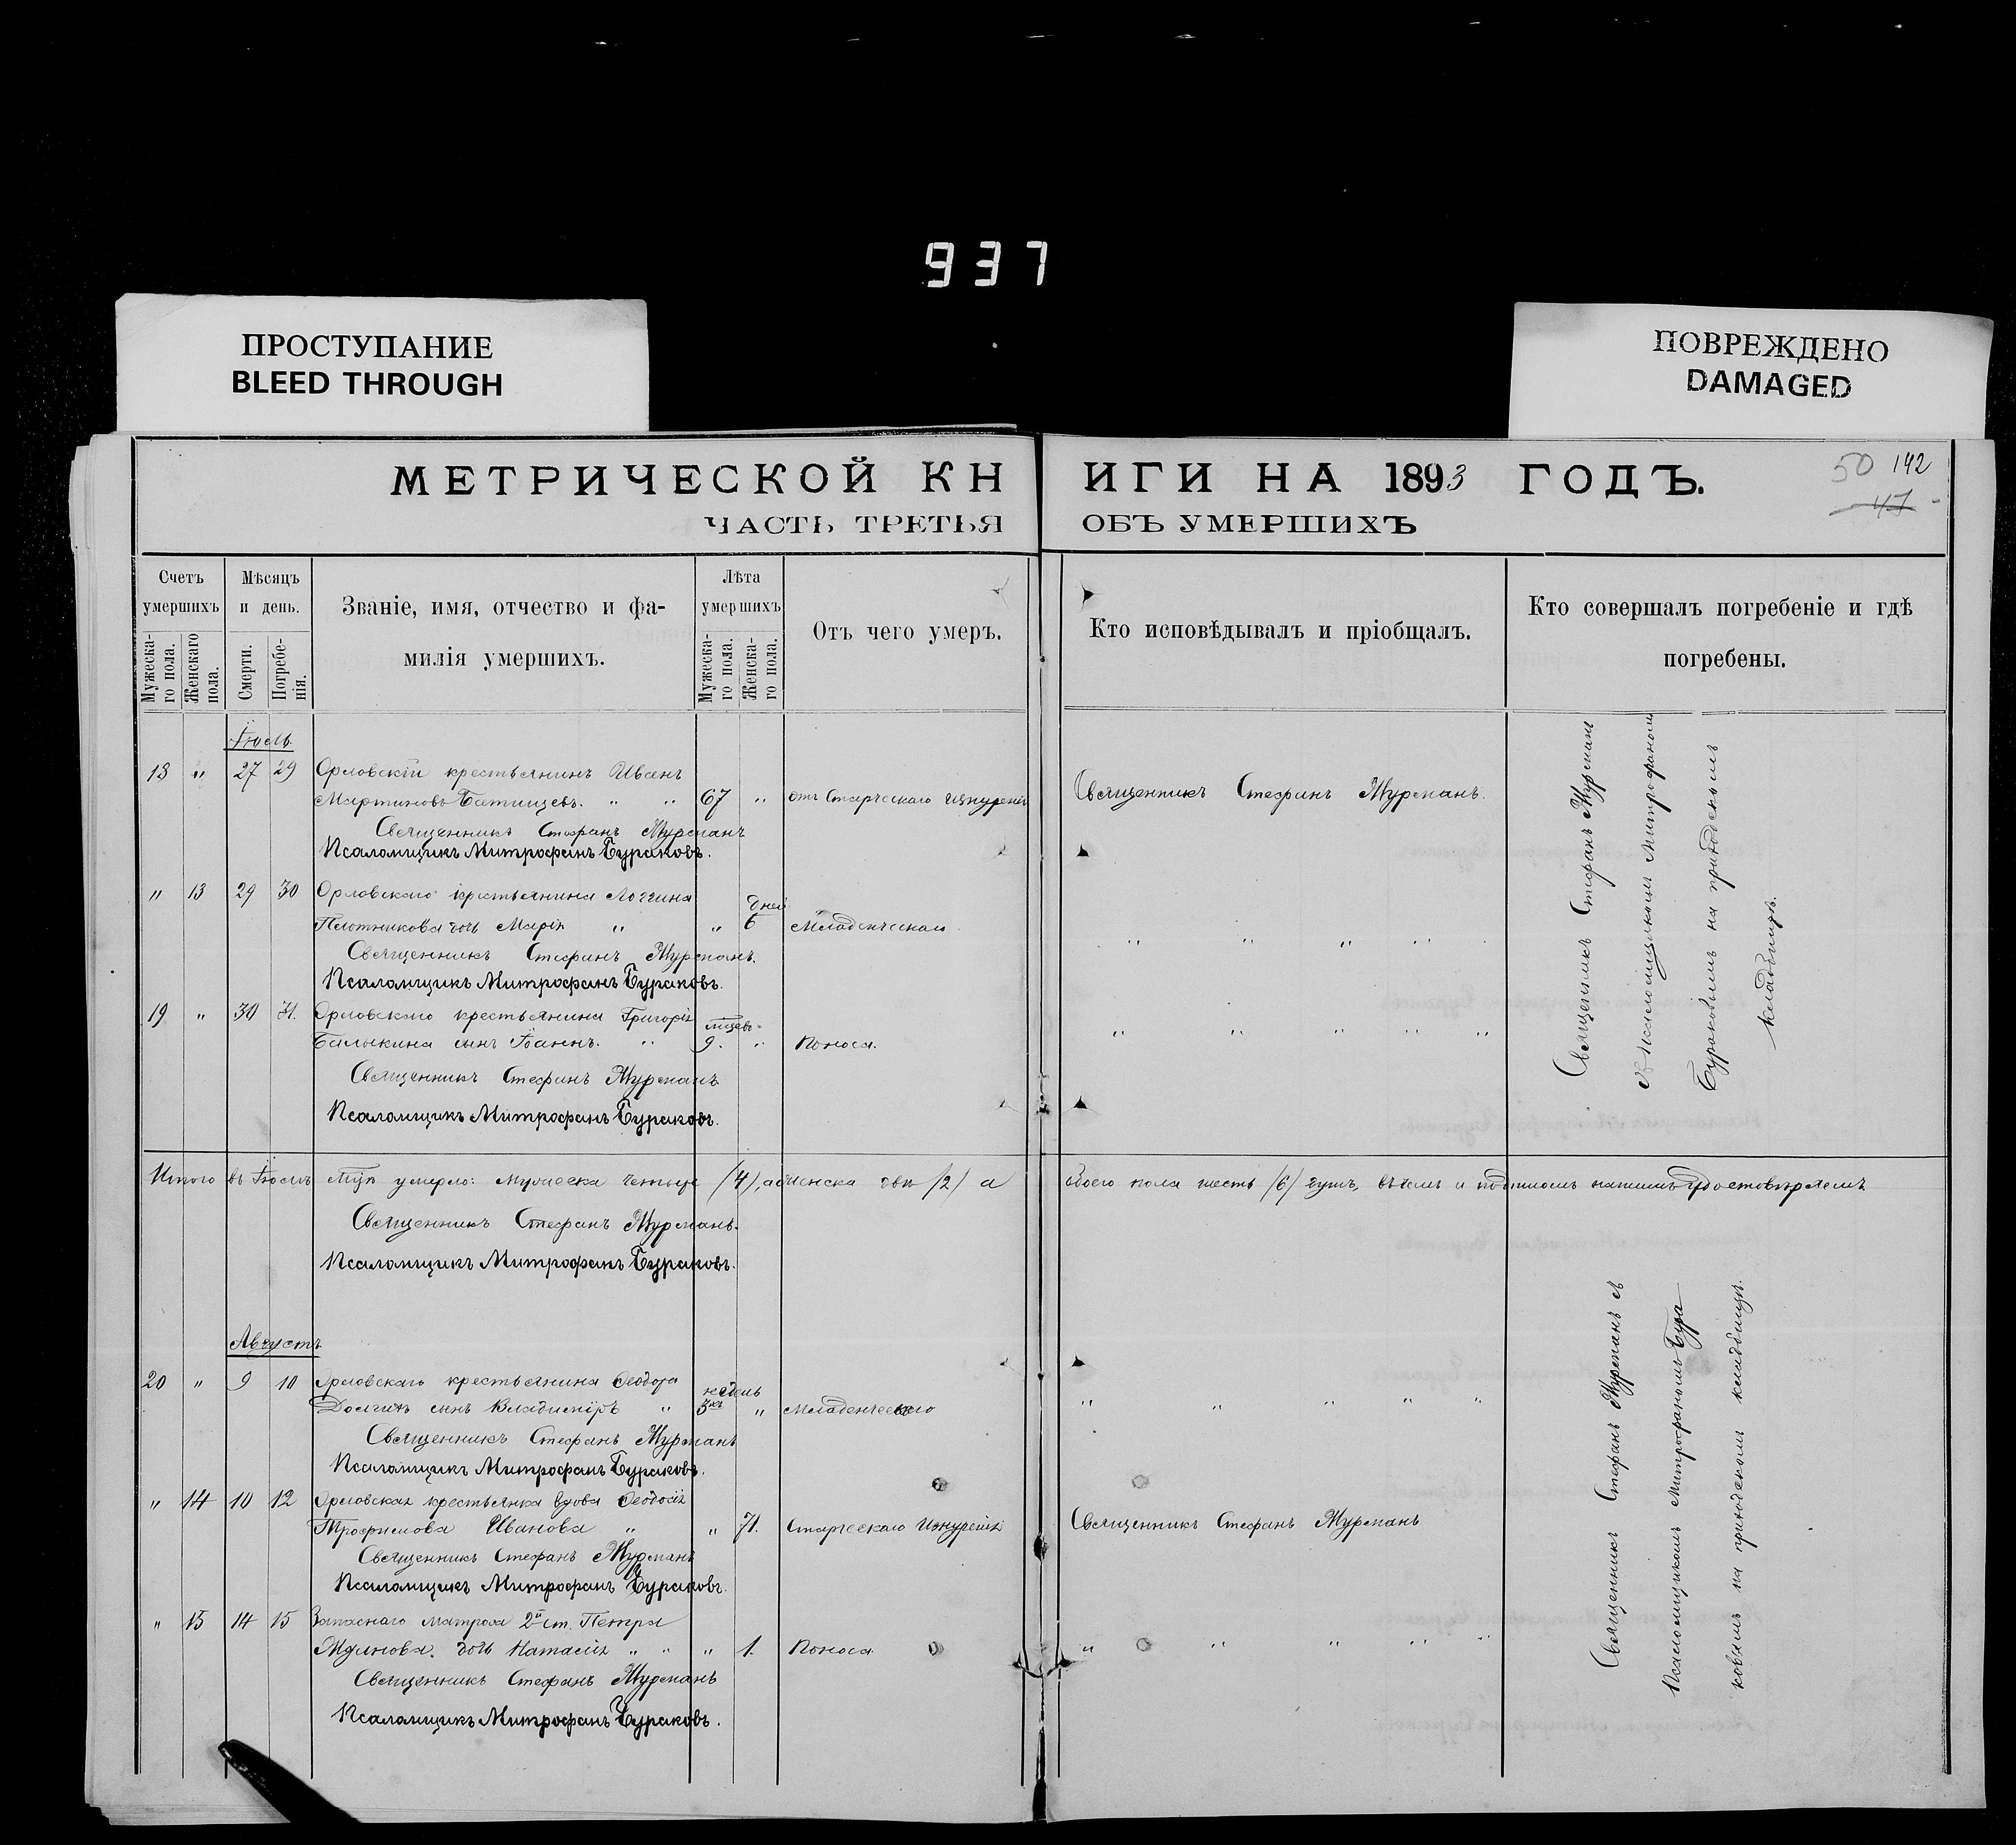 937
ПРОСТУПАНИЕ
BLEED THROUGH
ПОВРЕЖДЕНО
DAMAGED
МЕТРИЧЕСКОЙ КНИГИ НА 1893 ГОДЪ.
50 142
47
ЧАСТЬ ТРЕТЬЯ ОБЪ УМЕРШИХЪ
Счетъ умершихъ
Мужеска-го пола.
Женскаго пола.
Мѣсяцъ и день.
Смерти.
Погребе-нія.
Званіе, имя, отчество и фа-
милія умершихъ.
Лѣта умершихъ
Мужеска-го пола.
Женска-го пола.
Отъ чего умеръ.
Кто исповѣдывалъ и пріобщалъ.
Кто совершалъ погребеніе и гдѣ
погребены.
Іюль
18 " 27 29 Орловскій крестьянинъ Иванъ
Мартиновъ Батищевъ. " " 67 " отъ Старческаго изнуренія Священникъ Стефанъ Мурманъ.
Священникъ Стефанъ Мурманъ
Псаломщикъ Митрофанъ Бураковъ.
" 13 29 30 Орловскаго крестьянина Логгина
Плотникова дочь Марія " " дней 6 Младенческаго " " " "
Священникъ Стефанъ Мурманъ.
Псаломщикъ Митрофанъ Бураковъ.
19 " 30 31. Орловскаго крестьянина Григорія
Балыкина сынъ Іоаннъ. " 9. " Поноса. " " " " "
Священникъ Стефанъ Мурманъ
Псаломщикъ Митрофанъ Бураковъ.
Священникъ Стефанъ Мурманъ
съ Псаломщикомъ Митрофаномъ
Бураковымъ на приходскомъ
кладбищѣ.
Итого въ Іюлѣ умерло: мужеска четыре (4), а женска двѣ (2) а обоего пола шесть (6) душъ, въ чемъ и подписомъ нашимъ удостовѣряемъ.
Священникъ Стефанъ Мурманъ.
Псаломщикъ Митрофанъ Бураковъ.
Августъ
20 " 9 10 Орловскаго крестьянина Ѳеодора
Долгихъ сынъ Владиміръ " недель 3хъ " Младенческаго " " " " "
Священникъ Стефанъ Мурманъ
Псаломщикъ Митрофанъ Бураковъ.
" 14 10 12 Орловская крестьянка вдова Ѳеодосія
Трофимова Иванова " " 71. Старческаго изнуренія Священникъ Стефанъ Мурманъ
Священникъ Стефанъ Мурманъ
Псаломщикъ Митрофанъ Бураковъ.
" 15 14 15 Запаснаго матроса 2й ст. Петра
дочь Наталія " " " 1. Поноса " " " " "
Священникъ Стефанъ Мурманъ
Псаломщикъ Митрофанъ Бураковъ.
Священникъ Стефанъ Мурманъ съ
Псаломщикомъ Митрофаномъ Бура
ковымъ на приходскомъ кладбищѣ.